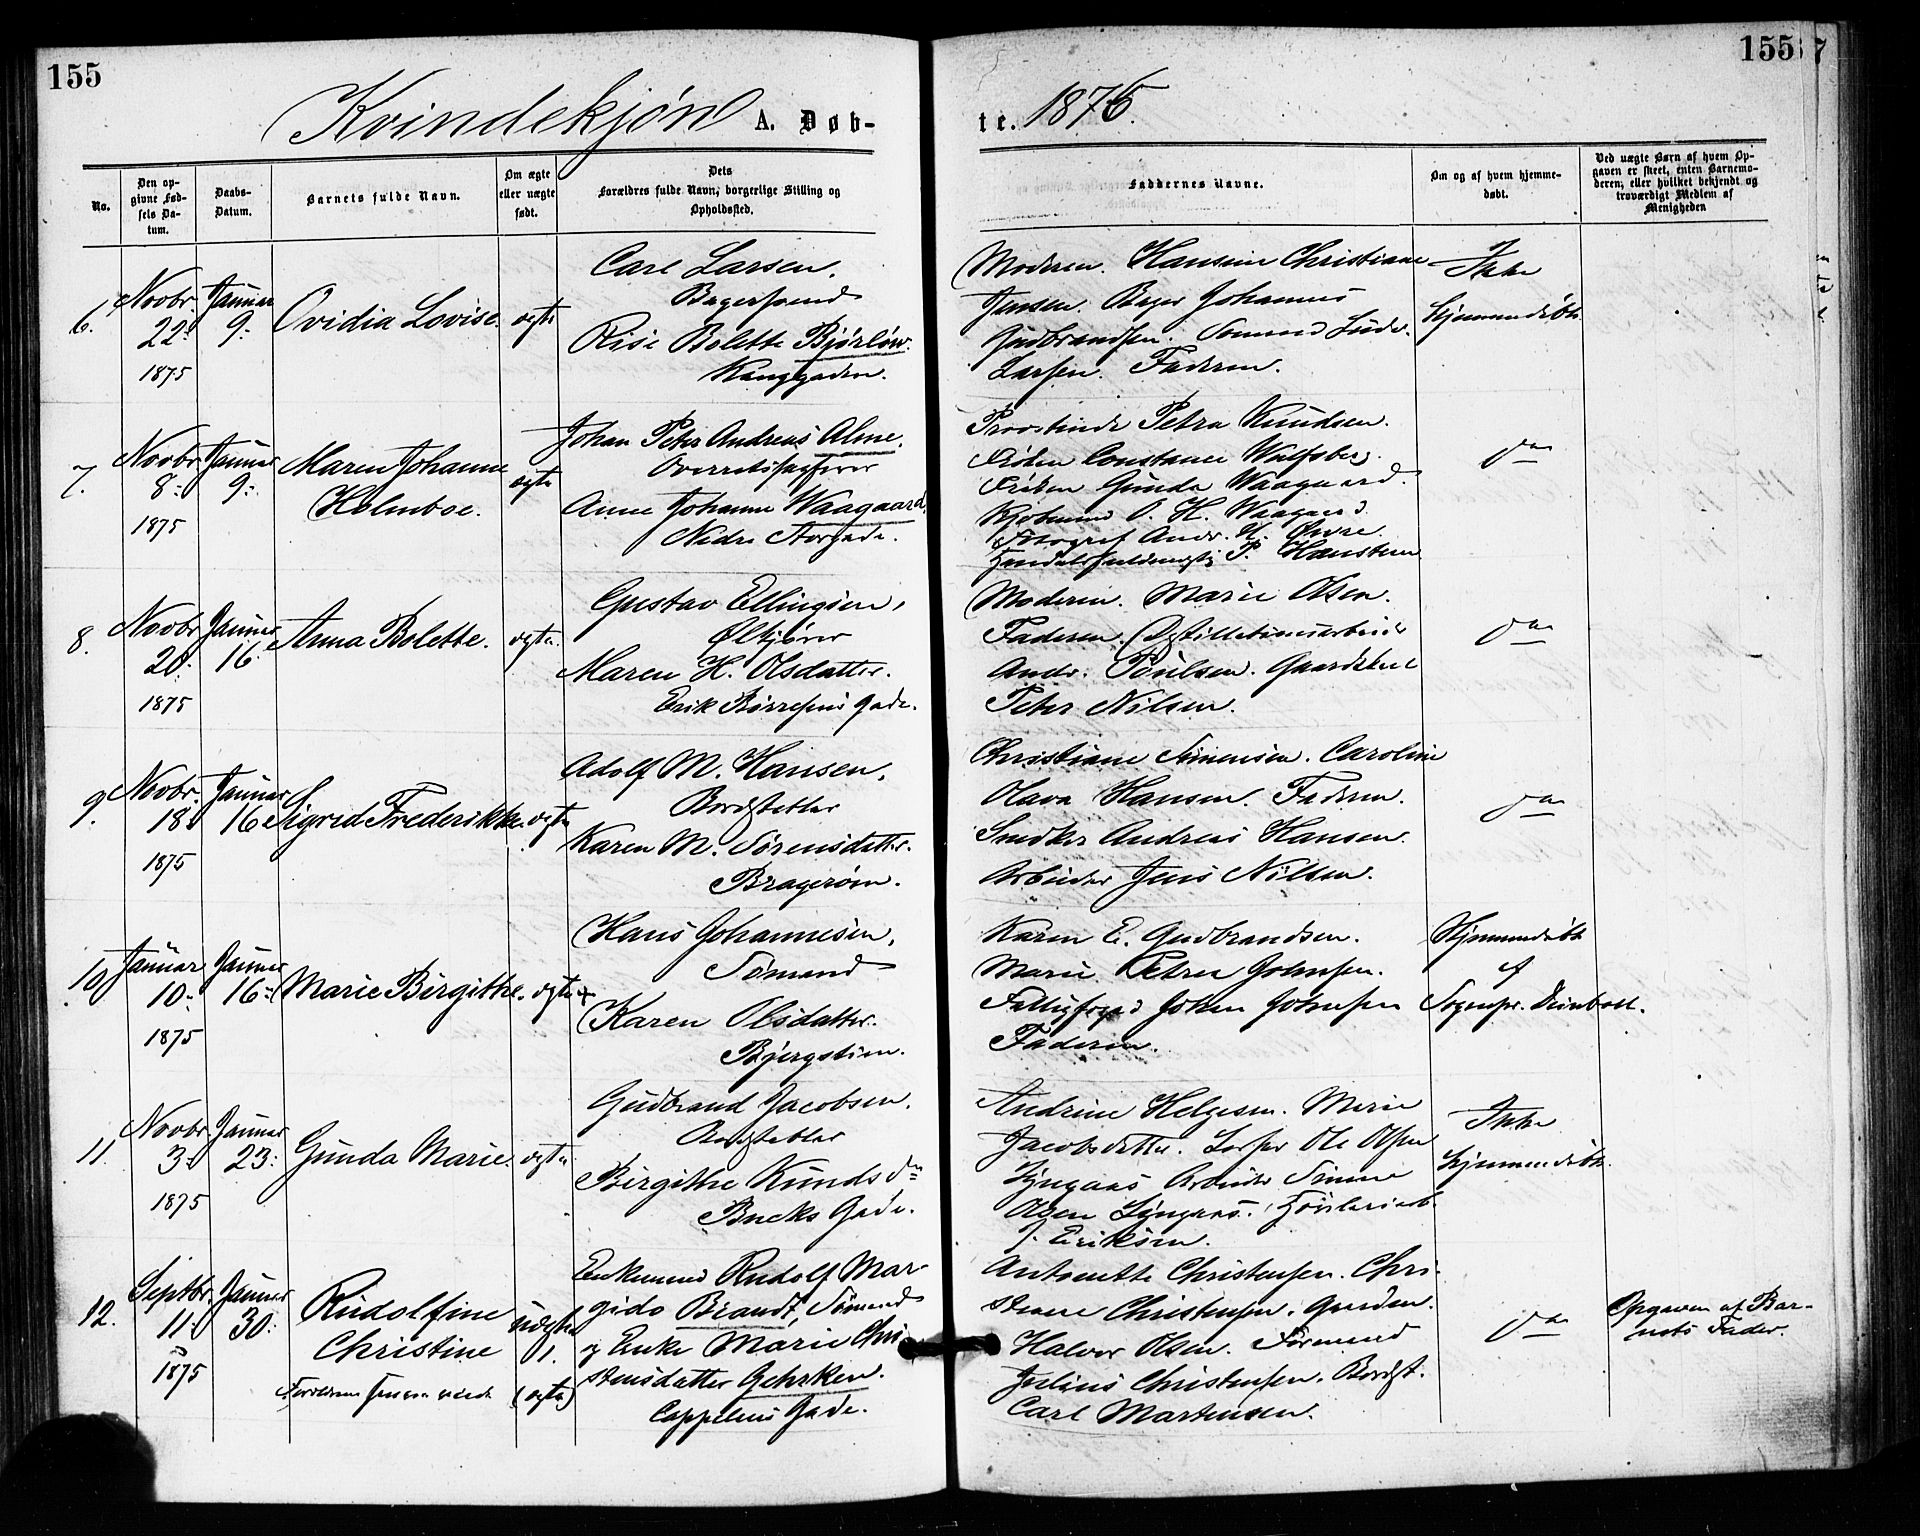 155
155
Kvindekjøn A. Døb-
te. 1876.
No.
Den op-
givne Fød-
sels Da-
tum.
Daabs-
Datum.
Barnets fulde Navn.
Om ægte
eller uægte
født.
Dets
Forældres fulde Navn, borgerlige Stilling og
Opholdssted.
Faddernes Navne.
Om og af hvem hjemme-
døbt.
Ved uægte Børn af hvem Op-
gaven er skeet, enten Barnemo-
deren, eller hvilket bekjendt og
troværdigt Medlem af
Menigheden
6.
Novbr
22:
1875
Januar
9:
Ovidia Lovise.
ægte
Carl Larsen.
Bagersvend
Rise Bolette Bjørløw.
Kongegaden.
Moderen. Hansine Christiane
Jensen. Bager Johannes
Gudbrandsen. Sømand
Larsen. Faderen.
Ikke
Hjemmedøbt
7.
Novbr
8:
1875
Januar
9:
Maren Johanne
Holmboe.
ægte
Johan Peter Andreas Alme.
Overretssagfører
Anne Johanne Waagaard.
Nedre Storgade.
Provstinde Petra Knudsen.
Frøken Constance Wulfsberg.
Frøken Gunda Waagaard.
Kjøbmand O. H. Waagaard
Fotograf Andr. H.
Handelsfuldmægtig P. Hansteen
do
8.
Novbr
20:
1875
Januar
16:
Anna Bolette.
ægte.
Gustav Ellingsen,
Ølkjører
Maren H. Olsdatter.
Erik Børresens Gade.
Moderen. Marie Olsen.
Faderen. Destillationsarbeider
Andr. Poulsen. Gaardskarl
Peter Nilsen.
do
9.
Novbr.
18:
1875
Januar
16
Sigrid Frederikke.
ægte
Adolf M. Hansen,
Bordstabler
Karen M. Sørensdatter.
Bragerøen.
Christiane Simensen. Caroline
Olava Hansen. Faderen.
Snedker Andreas Hansen.
Arbeider Jens Nilsen.
do
10.
Januar
10:
1875
Januar
16:
Marie Birgithe.
ægte +
Hans Johannesen,
Sømand
Karen Olsdatter.
Bjergstien.
Karen E. Gudbrandsen.
Marie Petrea Johnsen.
Johan Johnsen
Faderen.
Hjemmedøbt
af
Sognepr.
11.
Novbr
3:
1875
Januar
23:
Gunda Marie.
ægte
Gudbrand Jacobsen.
Bordstabler
Birgithe Knudsdn
Bucks Gade.
Andrine Helgesen. Marie
Jacobsdatter. Ole Olsen
Lyngaas Arbeider Simen
Olsen Lyngaas.
J. Eriksen.
Ikke
Hjemmedøbt.
12.
Septbr.
11:
1875
Januar
30:
Rudolfine
Christine
Forældrene senere viede
uægte
1.
(ægte)
Enkemand Rudolf Mar-
gido Brandt, Sømand
og Enke Marie Chri-
stensdatter Gehrken.
Cappelens Gade.
Antonette Christensen. Chri-
stiane Christensen. Gaardm.
Halvor Olsen. Formand
Julius Christensen. Bordst.
Carl Martinsen.
do
Opgaven af Bar-
nets Fader.